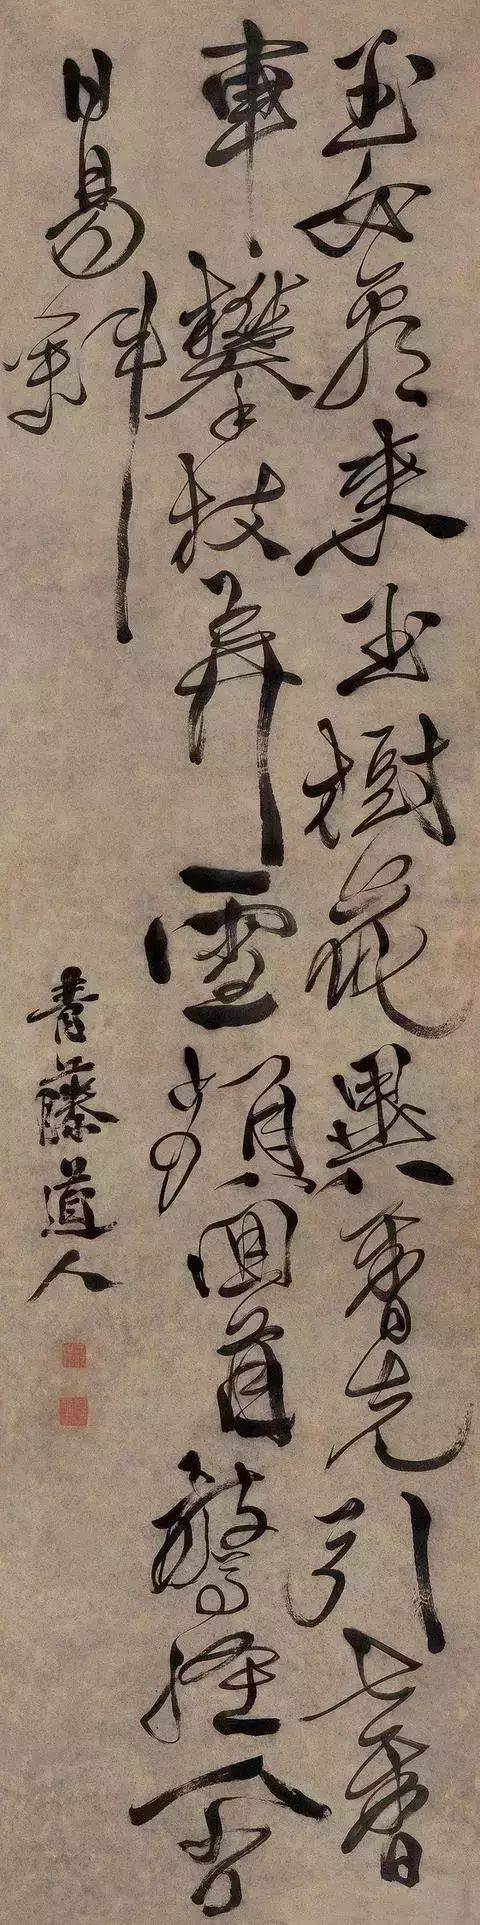 玉女看来玉樹花異香先引七香
車攀枝弄雪頻回首驚怪人間
日易斜
青藤道人